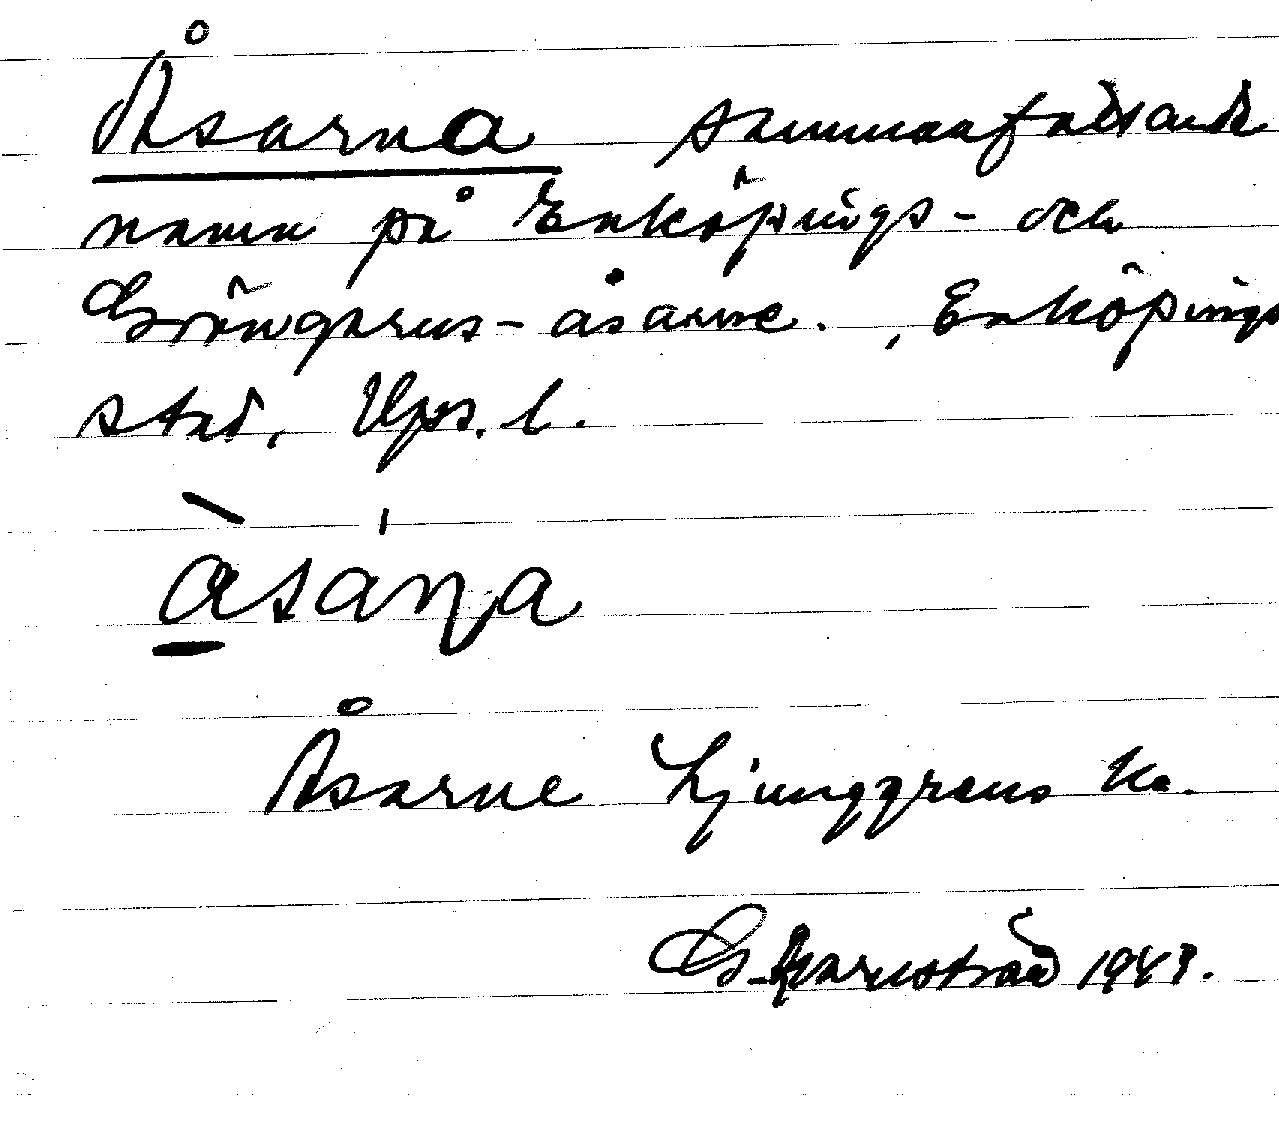 Åsarna sammanfattande
namn på Enköpings- och
Gröngarns-åsarne., Enköpings
stad, Ups. l.
àsáṇa
Åsarne Ljunggrens Ka.
G. 1943.